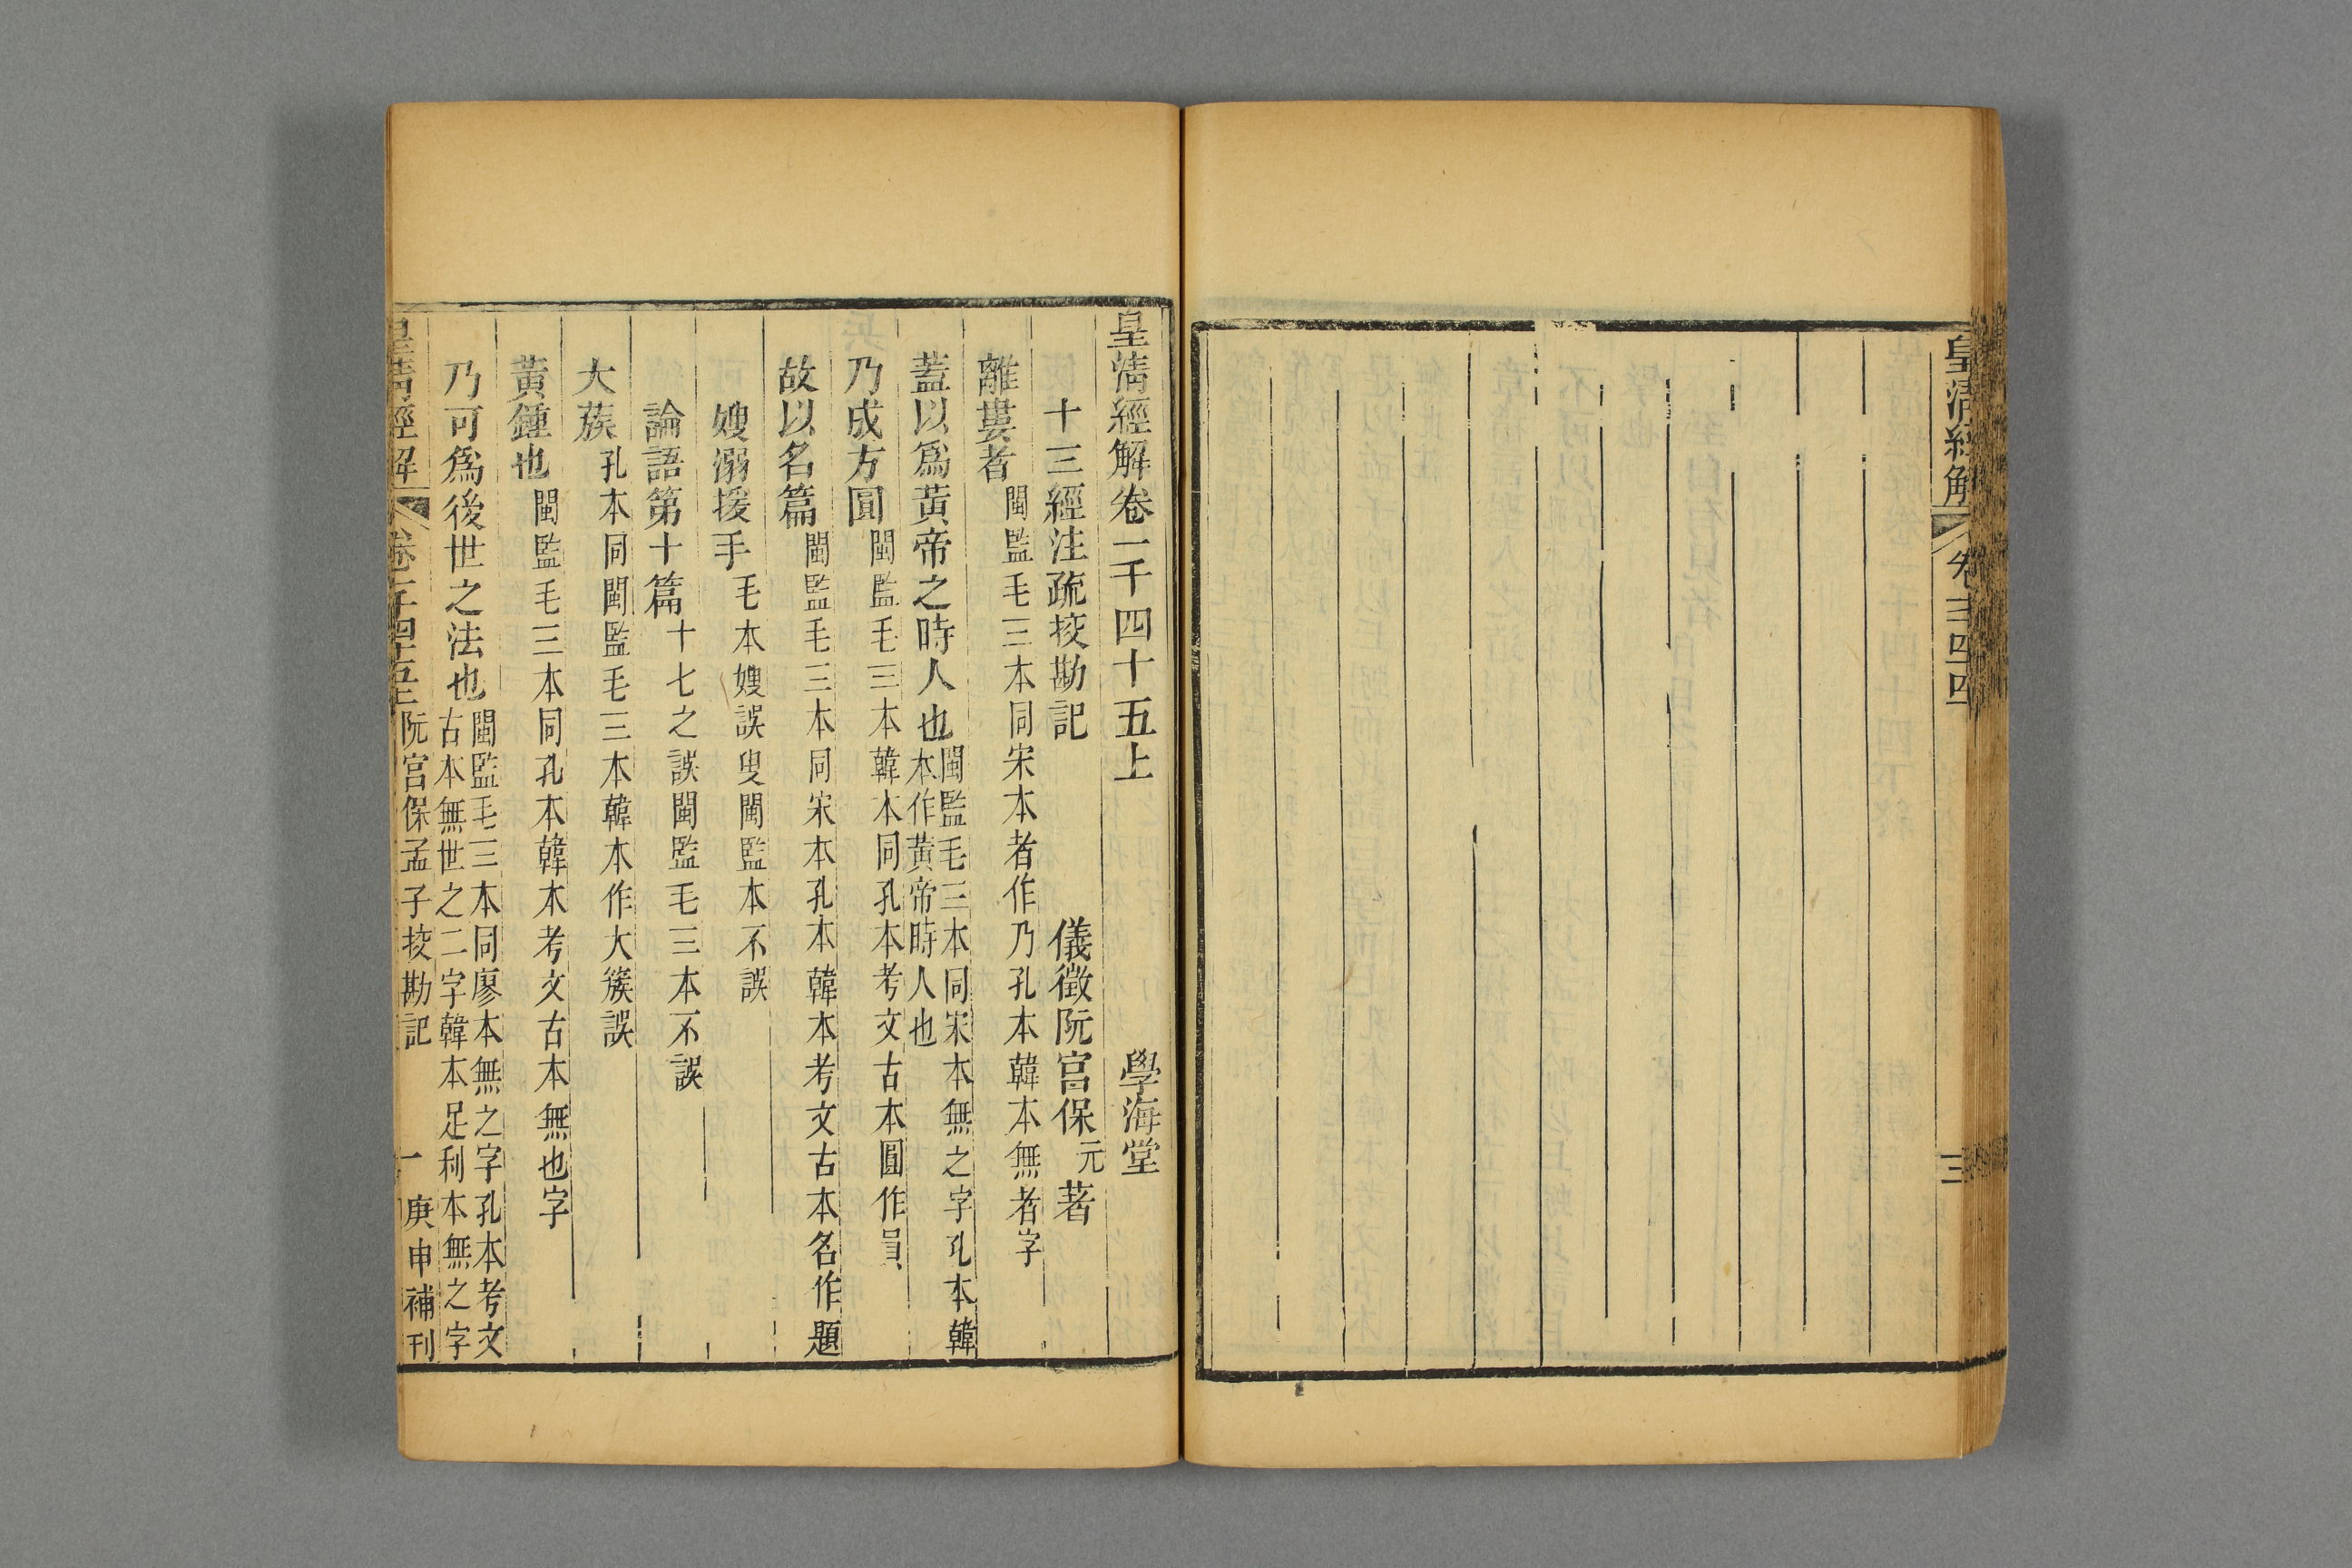 皇清經解
三
皇清經解卷一千四十五上
學海堂
十三經注疏挍勘記
儀徵阮宮保元著
離婁者閩監毛三本同宋本者作乃孔本韓本無者字
蓋以爲黃帝之時人也閩監毛三本同宋本無之字孔本韓
本作黃帝時人也
乃成方圓閩監毛三本韓本同孔本考文古本圓作員
故以名篇閩監毛三本同宋本孔本韓本考文古本名作題
嫂溺援手毛本嫂誤叟閩監本不誤
論語第十篇十七之誤閩監毛三本不誤
大蔟孔本同閩監毛三本韓本作大簇誤
黃鍾也閩監毛三本同孔本韓本考文古本無也字
乃可爲後世之法也閩監毛三本同廖本無之字孔本考文
古本無世之二字韓本足利本無之字
皇清經解
卷一千四十五上
阮宮保孟子挍勘記
一
庚申補刊